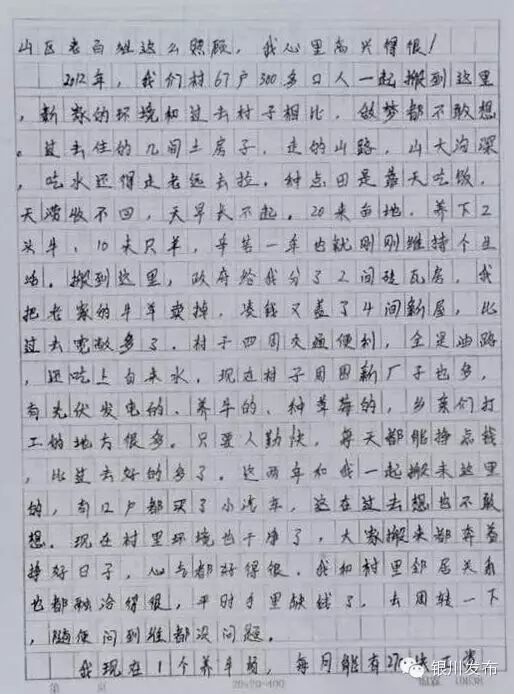 山区老百姓这么照顾，我心里高兴得很！
2012年，我们村67户300多口人一起搬到这里
，新家的环境和过去村子相比，做梦都不敢想
。过去住的几间土房子，走的山路，山大沟深
，吃水还得走老远去拉。种点田是靠天吃饭，
天涝收不回，天旱长不起。20来亩地，养下2
头牛、10来只羊，辛苦一年也就刚刚维持个生
活。搬到这里，政府给我分了2间砖瓦房，我
把老家的牛羊卖掉，凑钱又盖了4间新屋，比
过去宽敞多了。村子四周交通便利，全是油路
，还吃上自来水。现在村子周围新厂子也多，
有光伏发电的、养牛的、种草莓的，乡亲们打
工的地方很多。只要人勤快，每天都能挣点钱
，比过去好的多了。这两年和我一起搬来这里
的，有12户都买了小汽车，这在过去想也不敢
想。现在村里环境也干净了，大家搬来都奔着
挣好日子，心劲都好得很。我和村里邻居关系
也都融洽得很，平时手里缺钱了，去周转一下
，随便问到谁都没问题。
我现在1个养牛场，每月能有27
第 页 20×20=400
银川发布